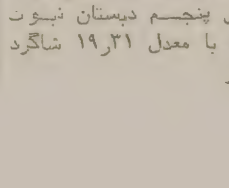 پنجم دبستان نبوت
با معدل ۱۹٫۳۱ شاگرد